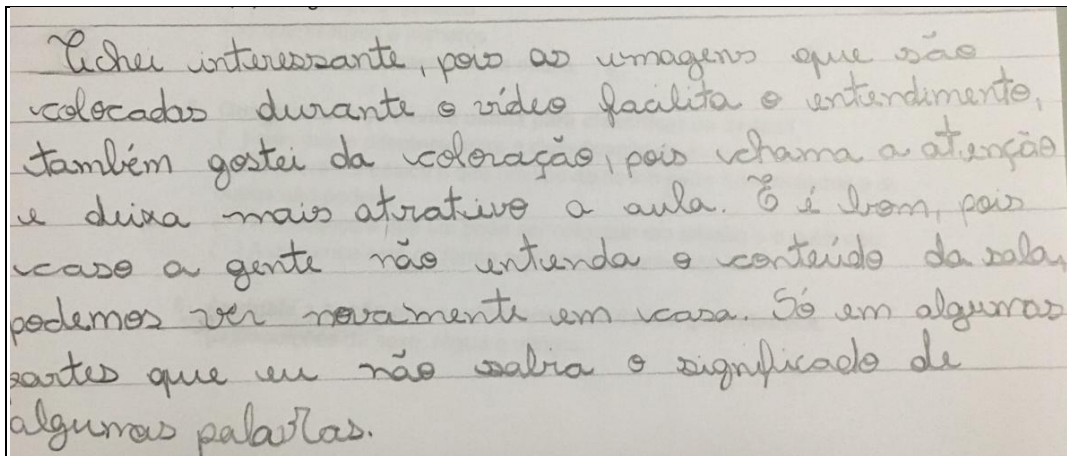 Achei interessante, pois as imagens que são
colocadas durante o vídeo facilita o entendimento,
também gostei da coloração, pois chama a atenção
e deixa mais atrativo a aula. E é bom, pois
caso a gente não entenda o conteúdo da sala,
podemos ver novamente em casa. Só em algumas
partes que eu não sabia o significado de
algumas palavras.